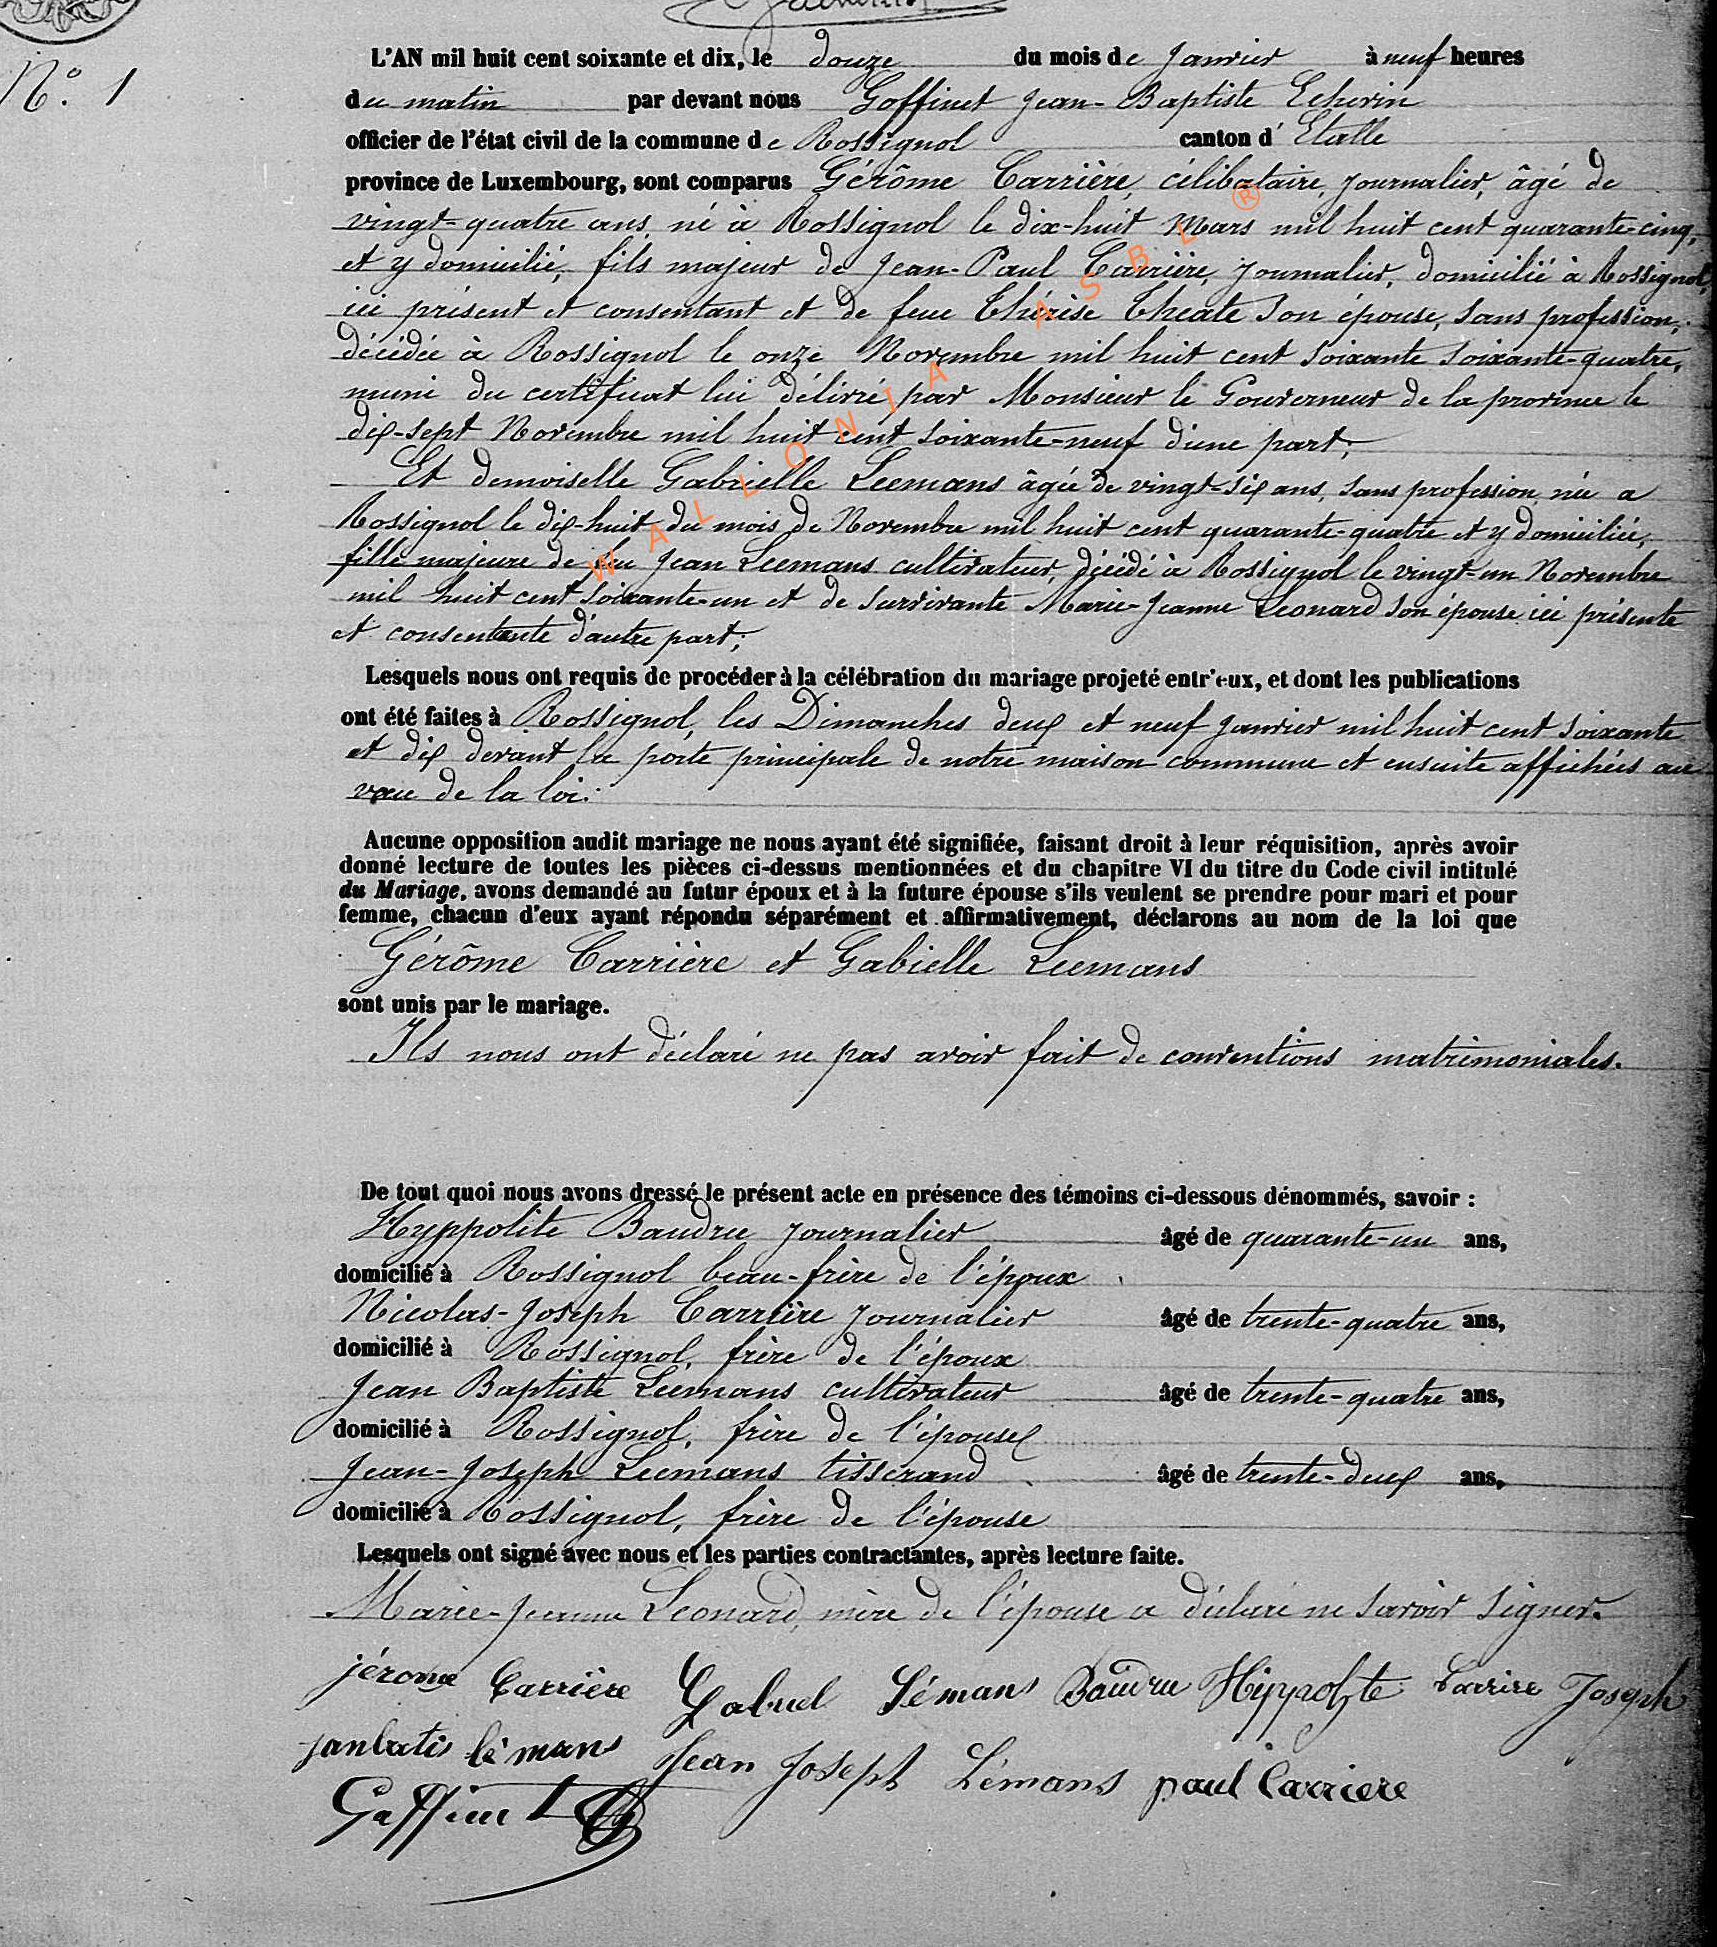 N° 1
L'AN mil huit cent soixante et dix, le douze du mois de Janvier à neuf heures
du matin par devant nous Goffinet Jean-Baptiste Echevin
officier de l'état civil de la commune de Rossignol canton d'Etalle
province de Luxembourg, sont comparus Gérôme Carrière, célibataire, journalier, âgé de
vingt-quatre ans, né à Rossignol le dix-huit Mars mil huit cent quarante-cinq,
et y domicilié, fils majeur de Jean-Paul Carrière, journalier, domicilié à Rossignol,
ici présent et consentant et de feue Thérèse Theate son épouse, sans profession,
décédée à Rossignol le onze Novembre mil huit cent soixante soixante-quatre,
muni du certificat lui délivré par Monsieur le Gouverneur de la province le
dix-sept Novembre mil huit cent soixante-neuf d'une part;
Et demoiselle Gabrielle Leemans âgée de vingt-six ans, sans profession née a
Rossignol le dix-huit du mois de Novembre mil huit cent quarante-quatre et y domiciliée,
fille majeure de feu Jean Leemans cultivateur, décédé à Rossignol le vingt-un Novembre
mil huit cent soixante-un et de survivante Marie-Jeanne Leonard son épouse ici présente
et consentante d'autre part;
Lesquels nous ont requis de procéder à la célébration du mariage projeté entr'eux, et dont les publications
ont été faites à Rossignol, les Dimanches deux et neuf Janvier mil huit cent soixante
et dix devant la porte principale de notre maison commune et ensuite affichées au
vœu de la loi.
Aucune opposition audit mariage ne nous ayant été signifiée, faisant droit à leur réquisition, après avoir
donné lecture de toutes les pièces ci-dessus mentionnées et du chapitre VI du titre du Code civil intitulé
du Mariage, avons demandé au futur époux et à la future épouse s'ils veulent se prendre pour mari et pour
femme, chacun d'eux ayant répondu séparément et affirmativement, déclarons au nom de la loi que
Gérôme Carrière et Gabielle Leemans
sont unis par le mariage.
Ils nous ont déclaré ne pas avoir fait de conventions matrimoniales.
De tout quoi nous avons dressé le présent acte en présence des témoins ci-dessous dénommés, savoir :
Hyppolite Baudru journalier âgé de quarante-un ans,
domicilié à Rossignol beau-frère de l'époux
Nicolas-Joseph Carrière journalier âgé de trente-quatre ans,
domicilié à Rossignol, frère de l'époux
Jean Baptiste Leemans cultivateur âgé de trente-quatre ans,
domicilié à Rossignol, frère de l'épouse
Jean-Joseph Leemans tisserand âgé de trente-deux ans,
domicilié à Rossignol, frère de l'épouse
Lesquels ont signé avec nous et les parties contractantes, après lecture faite.
Marie-Jeanne Leonard, mère de l'épouse a déclaré ne savoir signer.
jérome Carrière Gabriel Lémans Baudru Hippolyte Carrire Joseph
janbatis lémans Jean Joseph Lémans paul Carriere
Goffinet
WALLONIA ASBL ®